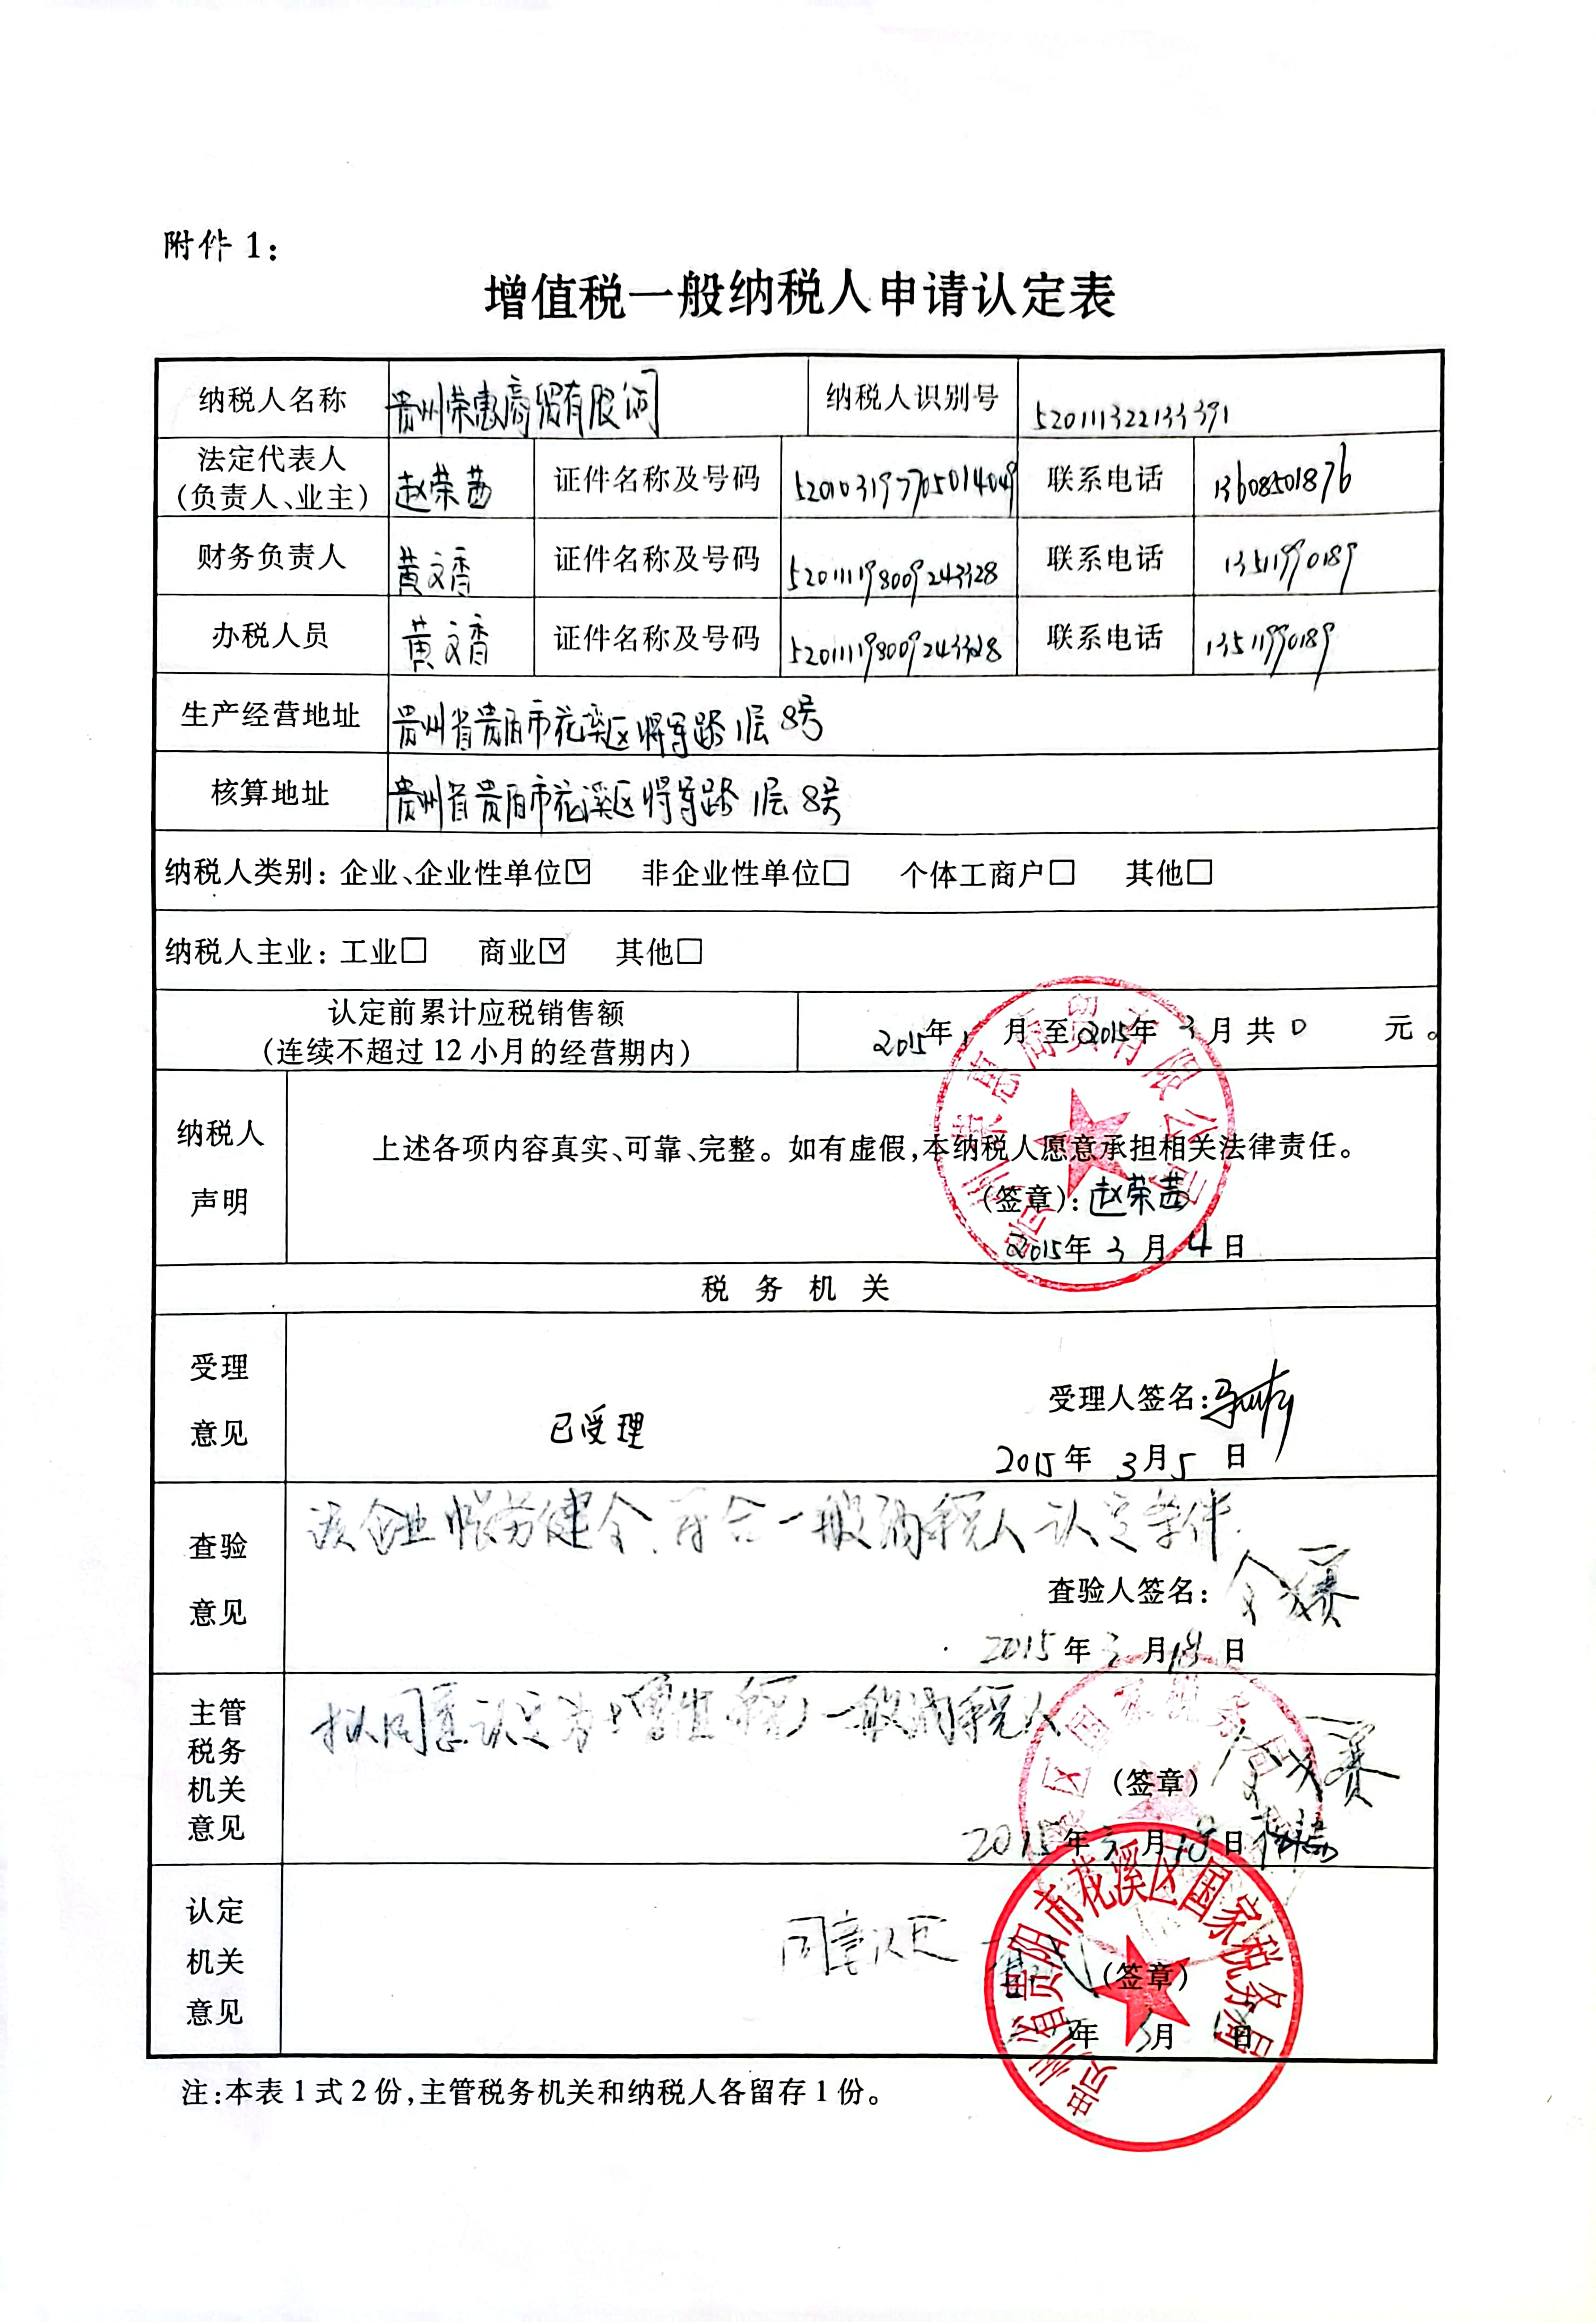 附件 1：
增值税一般纳税人申请认定表
纳税人名称 贵州荣惠商贸有限公司 纳税人识别号 520111322133391
法定代表人
（负责人、业主） 赵荣茜 证件名称及号码 520103197705014049 联系电话 13608501876
财务负责人 黄文香 证件名称及号码 520111198009243328 联系电话 13511990189
办税人员 黄文香 证件名称及号码 520111198009243328 联系电话 13511990189
生产经营地址 贵州省贵阳市花溪区将军路1层8号
核算地址 贵州省贵阳市花溪区将军路1层8号
纳税人类别：企业、企业性单位☑ 非企业性单位□ 个体工商户□ 其他□
纳税人主业：工业□ 商业☑ 其他□
认定前累计应税销售额
（连续不超过 12 个月的经营期内） 2015年1月至2015年3月共0元。
纳税人
声明
上述各项内容真实、可靠、完整。如有虚假，本纳税人愿意承担相关法律责任。
（签章）：赵荣茜
2015年3月4日
贵州荣惠商贸有限公司
税务机关
受理
意见
已受理
受理人签名：
2015年3月5日
查验
意见
该企业帐务健全，符合一般纳税人认定条件.
查验人签名：
2015年3月18日
主管
税务
机关
意见
拟同意认定为增值税一般纳税人
（签章）
2015年3月18日
认定
机关
意见
同意认定
（签章）
年3月 日
贵州省贵阳市花溪区国家税务局
注：本表 1 式 2 份，主管税务机关和纳税人各留存 1 份。